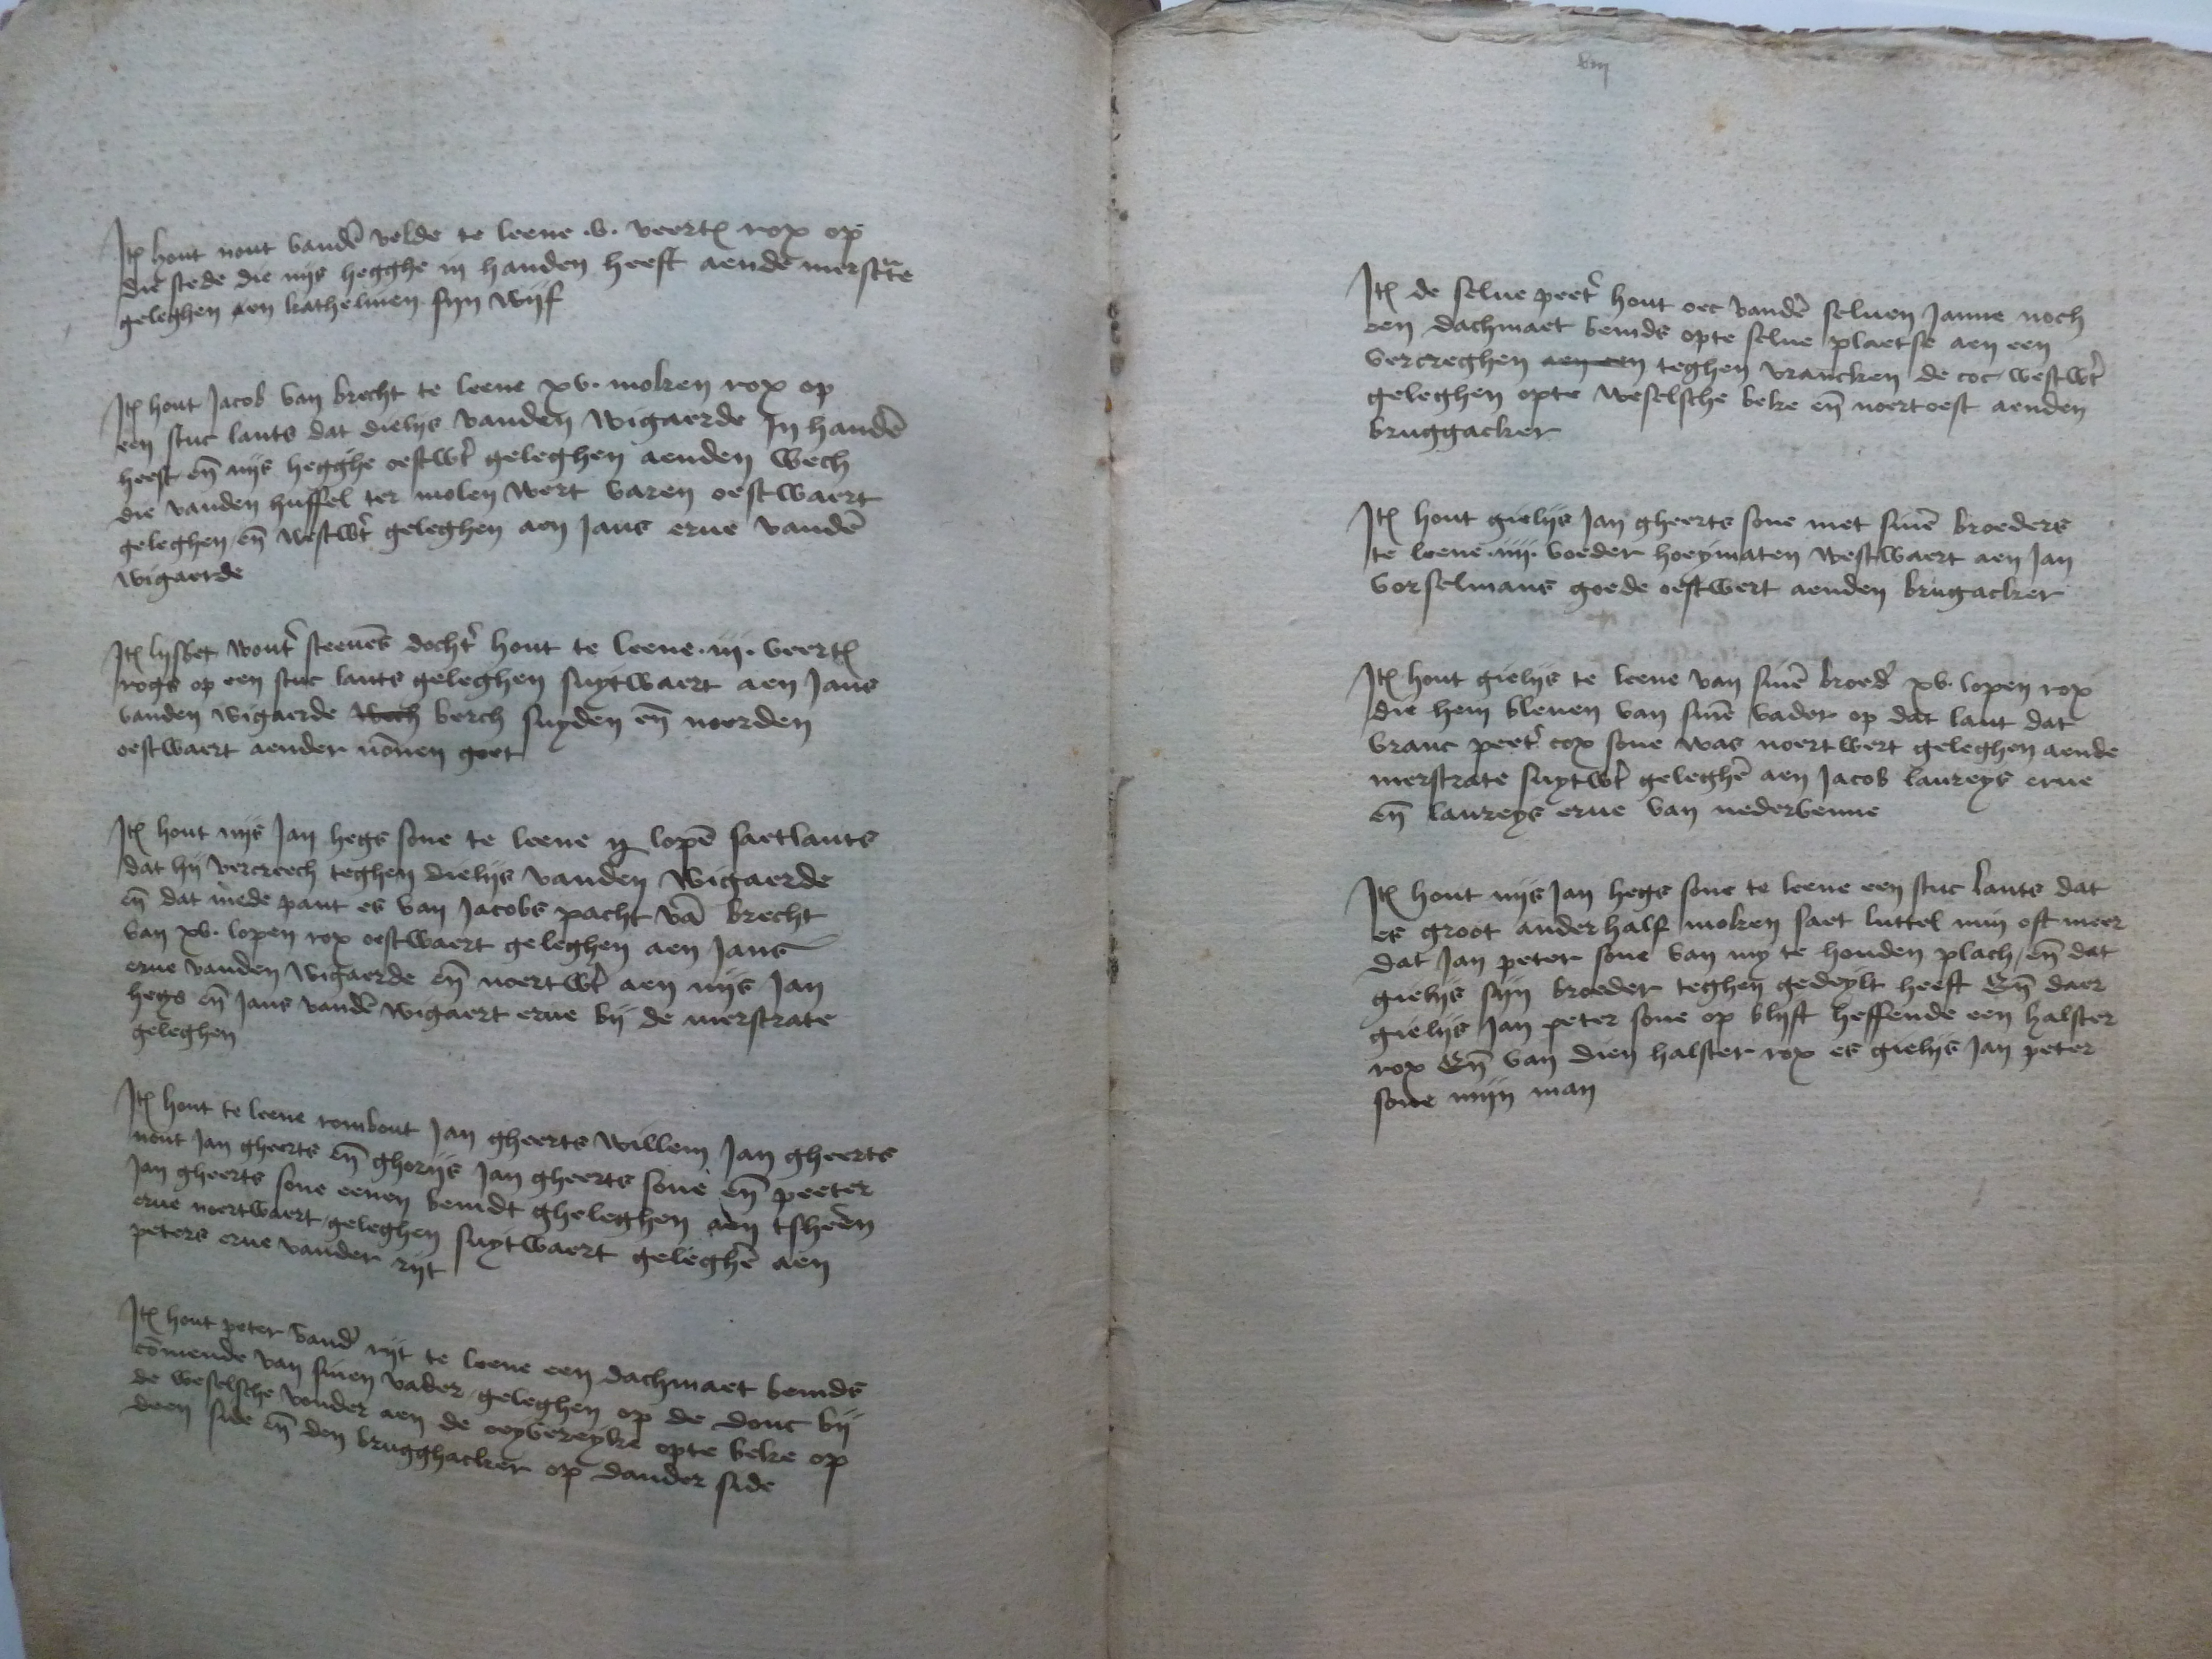 Itē hout nout vandē velde te leene .v. veertē rox op
die stede die nijs hegghe in handen heeft aende merstrate
geleghen aen kathelinen sijn wijf
Itē hout Jacob van brecht te leene xv. moken rox op
een stuc lants dat dielijs vanden wigaerde In handē
heeft eñ nijs hegghe oestwt geleghen aenden wech
die vanden huffel ter molen wert varen oestwaert
geleghen eñ westwt geleghen aen Jans erue vandē
wigaerde
Itē lijsbet wout steenēs docht hout te leene .iij. veertē
rogs op een stuc lants geleghen suytwaert aen Jans
vanden wigaerde wech berch suyden eñ noorden
oestwaert aender nōnen goet
Itē hout nijs Jan hegs sone te leene lopē saetlants
dat hij vercreech teghen dielijs vanden wigaerde
eñ dat mede pant es van Jacobs pacht vā brecht
van xv. lopen rox oestwaert geleghen aen Jans
erue vanden wigaerde eñ noertwt aen nijs Jan
hegs eñ Jans vandē wigaert erue bij de merstrate
geleghen
Itē hout te leene rombout Jan gheerts willem Jan gheerts
nout Jan gheerts eñ ghorijs Jan gheerts sone eñ peeter
Jan gheerts sone eenen bemdt gheleghen aen tsheren
erue noertwaert geleghen suytwaert geleghē aen
peters erue vander rijt
Itē hout peter vand rijt te leene een dachmaet bemds
cōmende van sinen vader geleghen op de donc bij
de weselsche vonder aen de oeyvereyke opte beke op
deen side eñ den brugghacker op dander side
viij
Itē de selue peet hout oec vandē seluen Janne noch
een dachmaet bemds opte selue plaetse aen een
vercreghen aen een teghen vrancken de coc westwt
geleghen opte weselsche beke eñ noertoest aenden
bruggacker
Itē hout gielijs Jan gheerts sone met sinē broeders
te leene .iiij. voeder hoeymaten westwaert aen Jan
vorselmans goede oestwert aenden brugacker
Itē hout gielijs te leene van sinē broed xv. lopen rox
die hem bleuen van sinē vader op dat lant dat
vranc peet cox sone was noertwert geleghen aende
merstrate suytwt geleghē aen Jacob laureys erue
eñ laureys erue van nedervenne
Itē hout nijs Jan hegs sone te leene een stuc lants dat
es groot anderhalf moken saet luttel min oft meer
dat Jan peter sone van my te houden plach eñ dat
gielijs sijn broeder teghen gedeylt heeft Eñ daer
gielijs Jan peter sone op blijft heffende een halster
rox Eñ van dien halster rox es gielijs Jan peter
sone mijn man